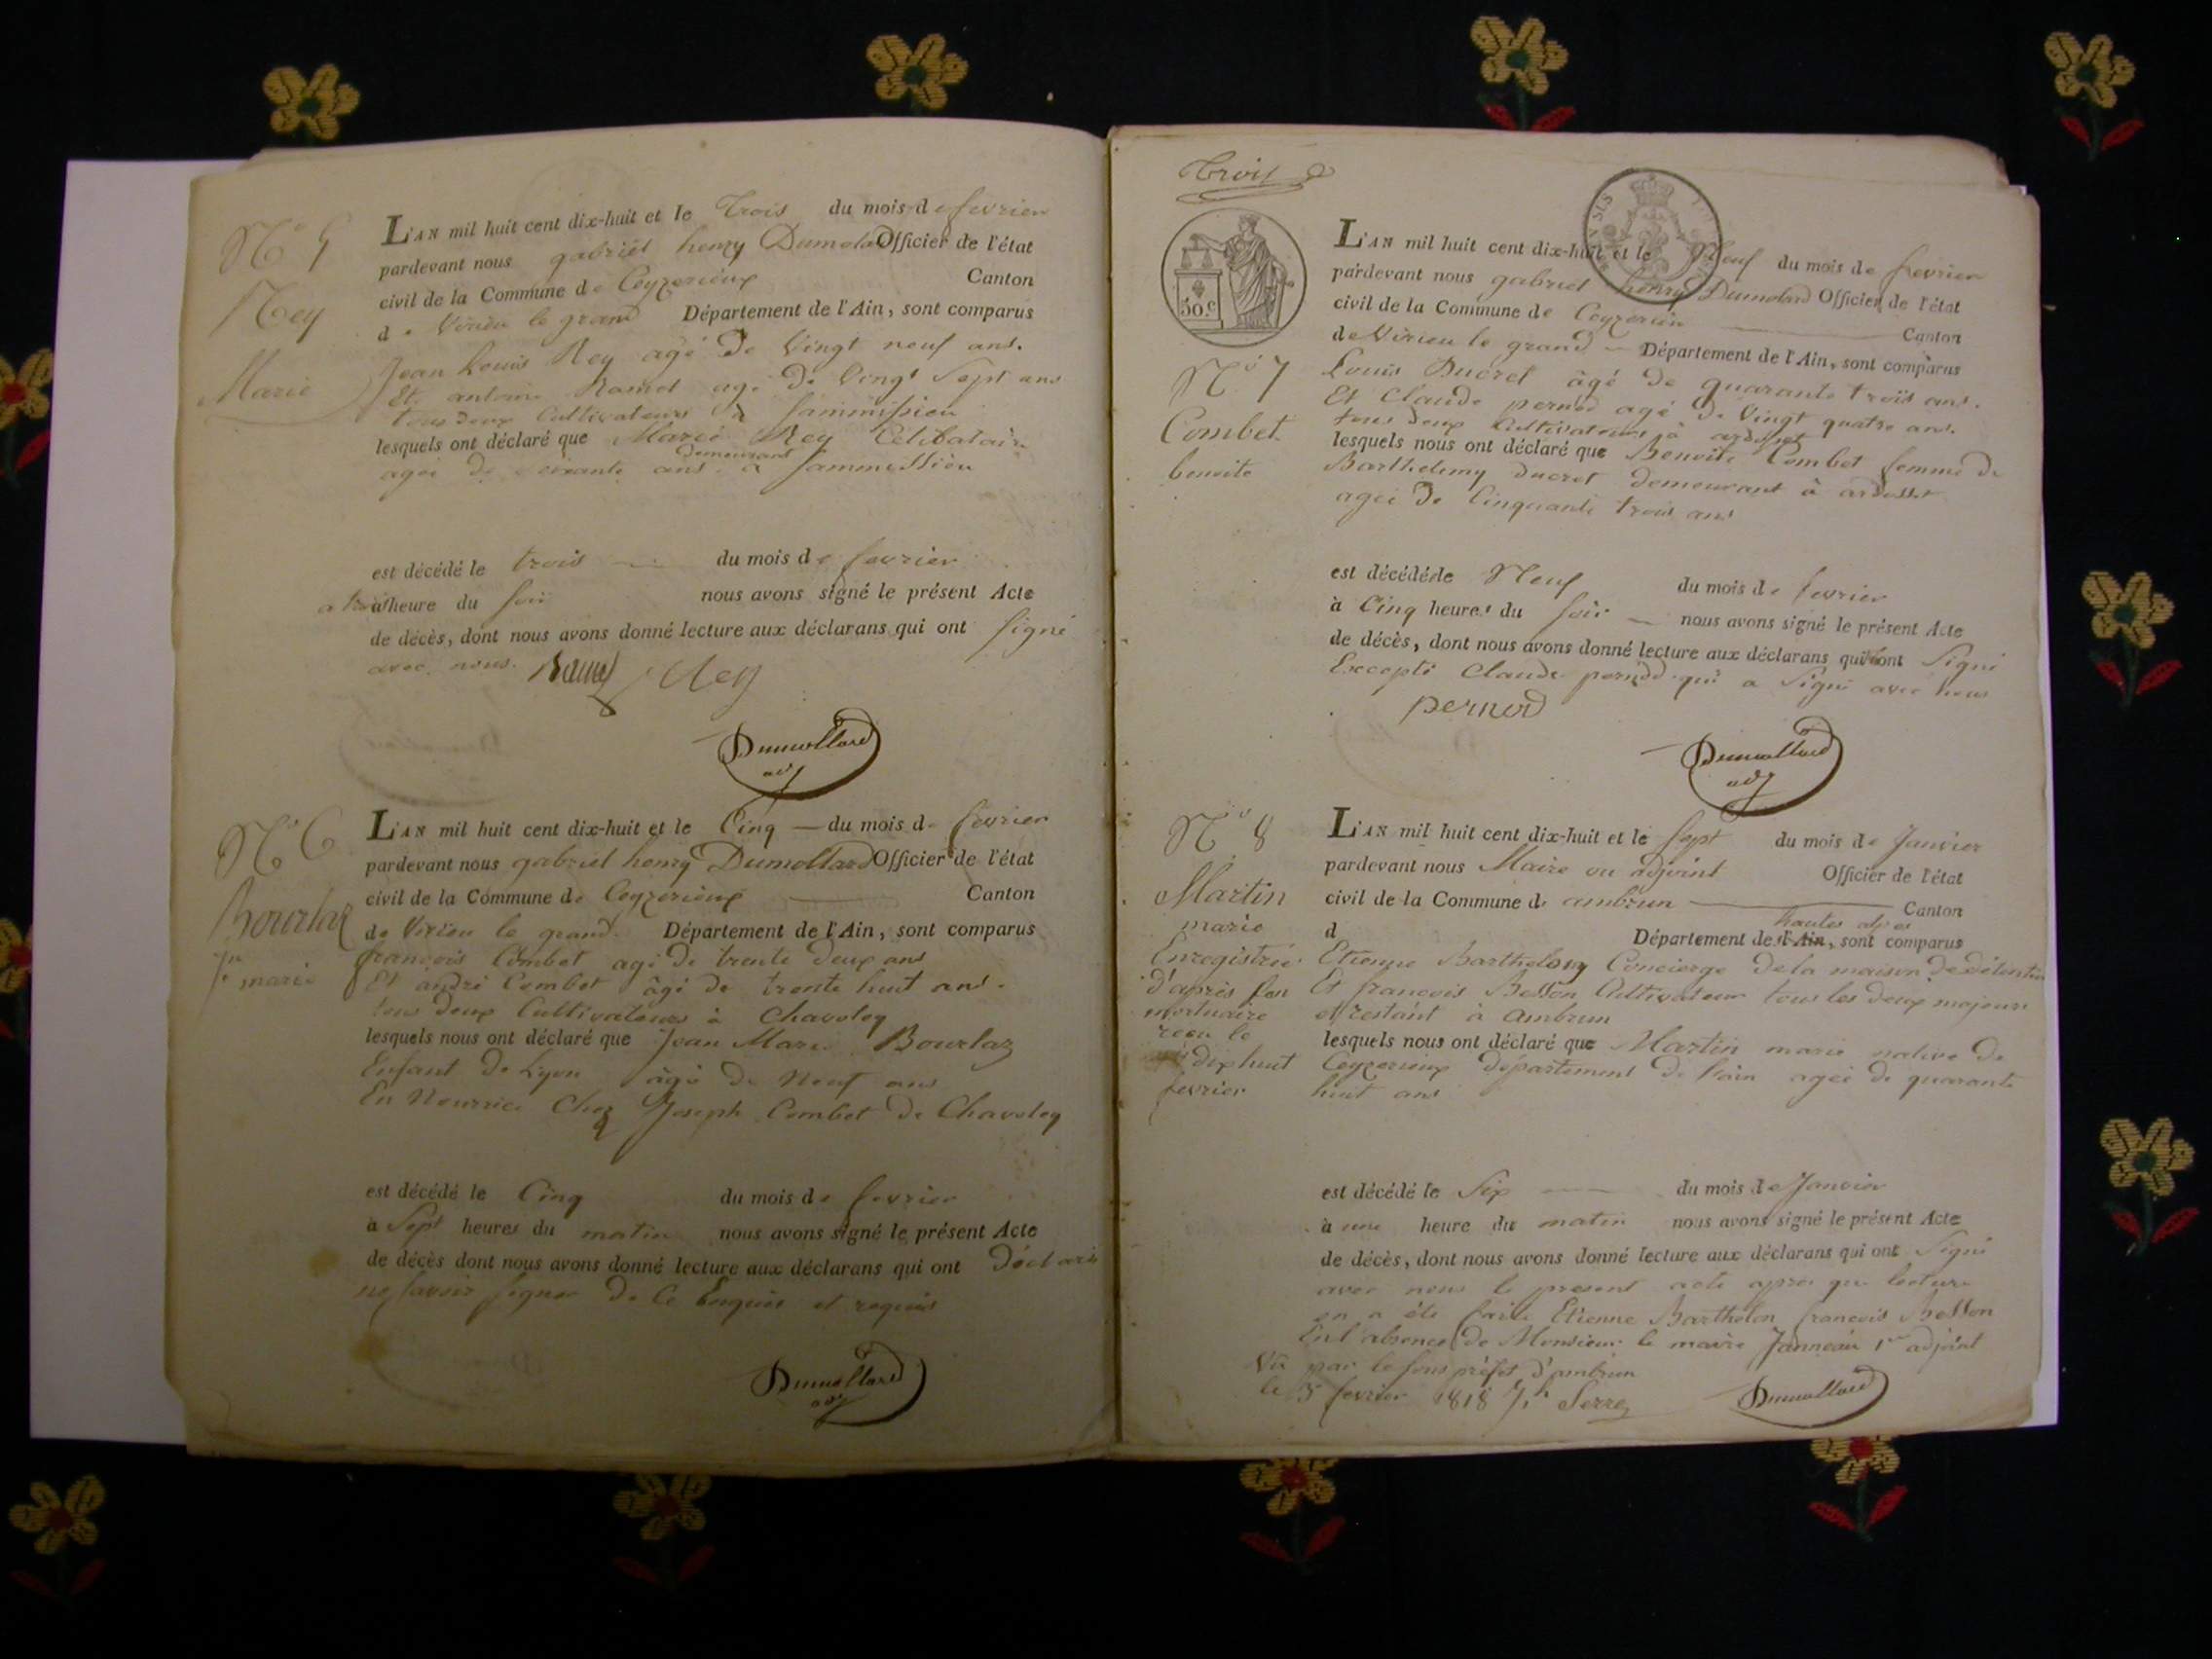 N.o 5
Rey
Marie
L'AN mil huit cent dix-huit et le Trois du mois de fevrier
pardevant nous gabriel henry Dumolard Officier de l'état
civil de la Commune de Ceyzerieux Canton
de Virieu le grand Département de l'Ain, sont comparus
Jean Louis Rey agé de Vingt neuf ans.
Et antoine Ramel agé de Vingt Sept ans
tous deux Cultivateurs à Sammissieu
lesquels ont déclaré que Marie Rey Célibataire
demeurant
agée de soixante ans à Sammissieu
est décédé le trois du mois de fevrier
à trois heure du soir nous avons signé le présent Acte
de décès, dont nous avons donné lecture aux déclarans qui ont signé
avec nous. Ramel Rey
Dumollard
adj
N.o 6
Bourlaz
Jn marie
L'AN mil huit cent dix-huit et le Cinq du mois de fevrier
pardevant nous gabriel henry Dumollard Officier de l'état
civil de la Commune de Ceyzerieux Canton
de Virieu le grand Département de l'Ain, sont comparus
francois Combet agé de trente deux ans
Et andré Combet âgé de trente huit ans.
tous deux Cultivateurs à Chavoley
lesquels nous ont déclaré que Jean Marie Bourlaz
Enfant de Lyon âgé de Neuf ans
En Nourrice Chez Joseph Combet de Chavoley
est décédé le Cinq du mois de fevrier
à Sept heures du matin nous avons signé le présent Acte
de décès dont nous avons donné lecture aux déclarans qui ont Déclaré
ne savoir signer de ce Enquis et requis
Dumollard
adj
Trois
50.c
L'AN mil huit cent dix-huit et le Neuf du mois de fevrier
pardevant nous gabriel henry Dumolard Officier de l'état
civil de la Commune de Ceyzerieu Canton
de Virieu le grand Département de l'Ain, sont comparus
N.o 7
Combet
benoite
Louis Ducret âgé de quarante trois ans.
Et Claude pernod agé de Vingt quatre ans.
tous deux Cultivateurs à ardosset
lesquels nous ont déclaré que Benoite Combet femme de
Barthelemy Ducret demeurant à ardosset
agée de Cinquante trois ans
est décédé le Neuf du mois de fevrier
à Cinq heures du soir nous avons signé le présent Acte
de décès, dont nous avons donné lecture aux déclarans qui ont Signé
Excepté Claude pernod qui a Signé avec nous
pernod
Dumollard
adj
N.o 8
Martin
marie
Enregistrée
d'après son
mortuaire
reçu le
dix huit
fevrier
L'AN mil huit cent dix-huit et le Sept du mois de Janvier
pardevant nous Maire ou adjoint Officier de l'état
civil de la Commune de ambrun Canton
hautes alpes
d Département de l'Ain, sont comparus
Etienne Barthelony Concierge de la maison de détention
Et francois Besson Cultivateur tous les deux majeurs
et restant à Ambrun
lesquels nous ont déclaré que Martin marie native de
Ceyzerieux département de l'ain agée de quarante
huit ans
est décédé le Six du mois de Janvier
à une heure du matin nous avons signé le présent Acte
de décès, dont nous avons donné lecture aux déclarans qui ont Signé
avec nous le present acte après que lecture
en a été faite Etienne Bartholon francois Besson
En l'absence de Monsieur le maire Janneau 1er adjoint
Vu par le sous préfet d'ambrun
le 5 fevrier 1818 Serres
Dumollard